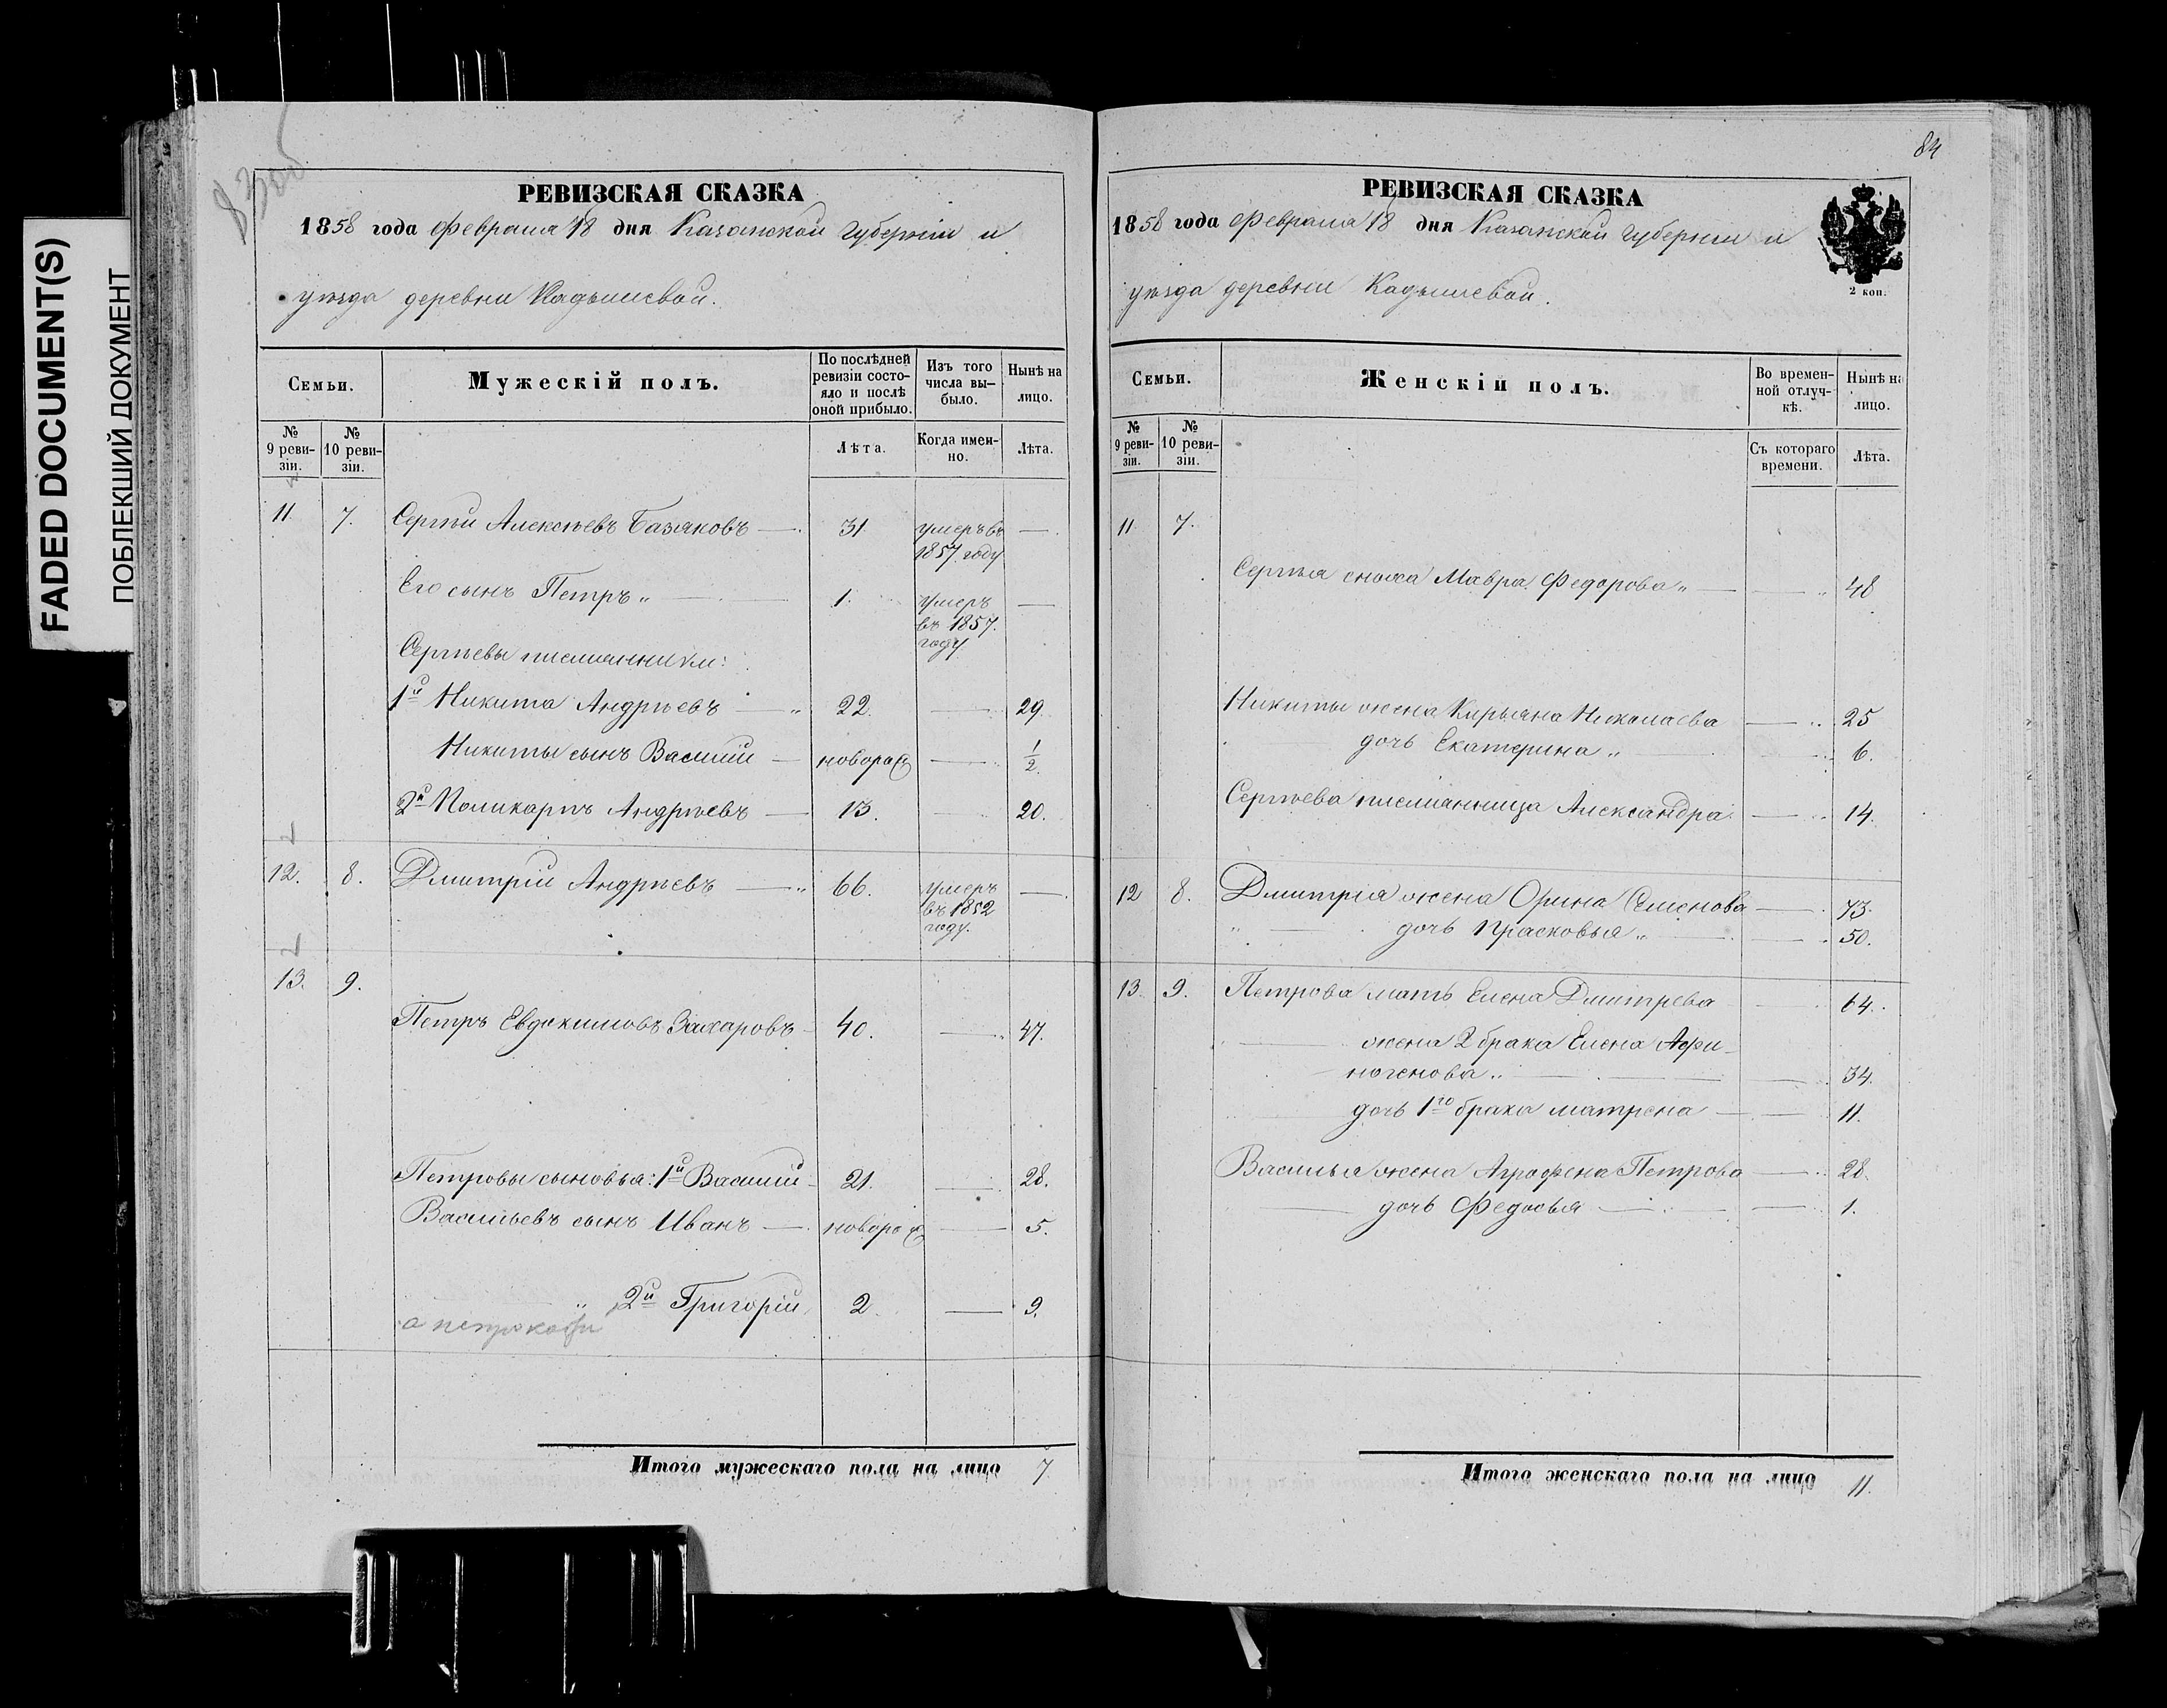 FADED DOCUMENT(S)
ПОБЛЕКШИЙ ДОКУМЕНТ
83об
РЕВИЗСКАЯ СКАЗКА
1858 года Февраля 18 дня Казанской Губерніи и
уѣзда деревни Кадышевой.
Семьи.
Мужескій полъ.
По послѣдней ревизіи состо-
яло и послѣ оной прибыло.
Изъ того числа вы-
было.
Нынѣ на лицо.
№ 9 реви-
зіи.
№ 10 реви-
зіи.
Лѣта.
Когда имен-
но.
Лѣта.
11. 7. Сергѣй Алексѣевъ Базяковъ — 31. умеръ въ —
1857 году
Его сынъ Петръ „ — 1. умеръ —
въ 1857.
году
Сергѣевы племянники:
1й Никита Андрѣевъ — „ 22. — 29.
Никиты сынъ Василій — новорож — 1/2.
2й Поликарпъ Андрѣевъ — 13. — 20.
12. 8. Дмитрій Андрѣевъ — „ 66. умеръ —
въ 1852
году.
13. 9.
Петръ Евдокимовъ Захаровъ 40. — 47.
Петровы сыновья: 1й Василій 21. — 28.
Васильевъ сынъ Иванъ — новорож — 5.
„ 2й Григорій 2. — 9.
Итого мужескаго пола на лицо 7
84
РЕВИЗСКАЯ СКАЗКА
1858 года Февраля 18 дня Казанской Губерніи и
уѣзда деревни Кадышевой.
2 коп.
Семьи.
Женскій полъ.
Во времен-
ной отлуч-
кѣ.
Нынѣ на
лицо.
№ 9 реви-
зіи.
№ 10 реви-
зіи.
Съ котораго
времени.
Лѣта.
11 7.
Сергѣя сноха Мавра Федорова „ — — 48
Никиты жена Кирьяна Николаева — 25
дочь Екатерина „ 6.
Сергѣева племянница Александра — 14.
12 8. Дмитрія жена Орина Семенова — 73.
„ — дочь Прасковья „ — 50.
13. 9. Петрова мать Елена Дмитрева 64.
— жена 2 брака Елена Афи-
ногенова „ — — 34.
дочь 1го брака матрена — — 11.
Василья жена Агрофена Петрова — 28.
— дочь Федосья — — 1.
Итого женскаго пола на лицо 11.